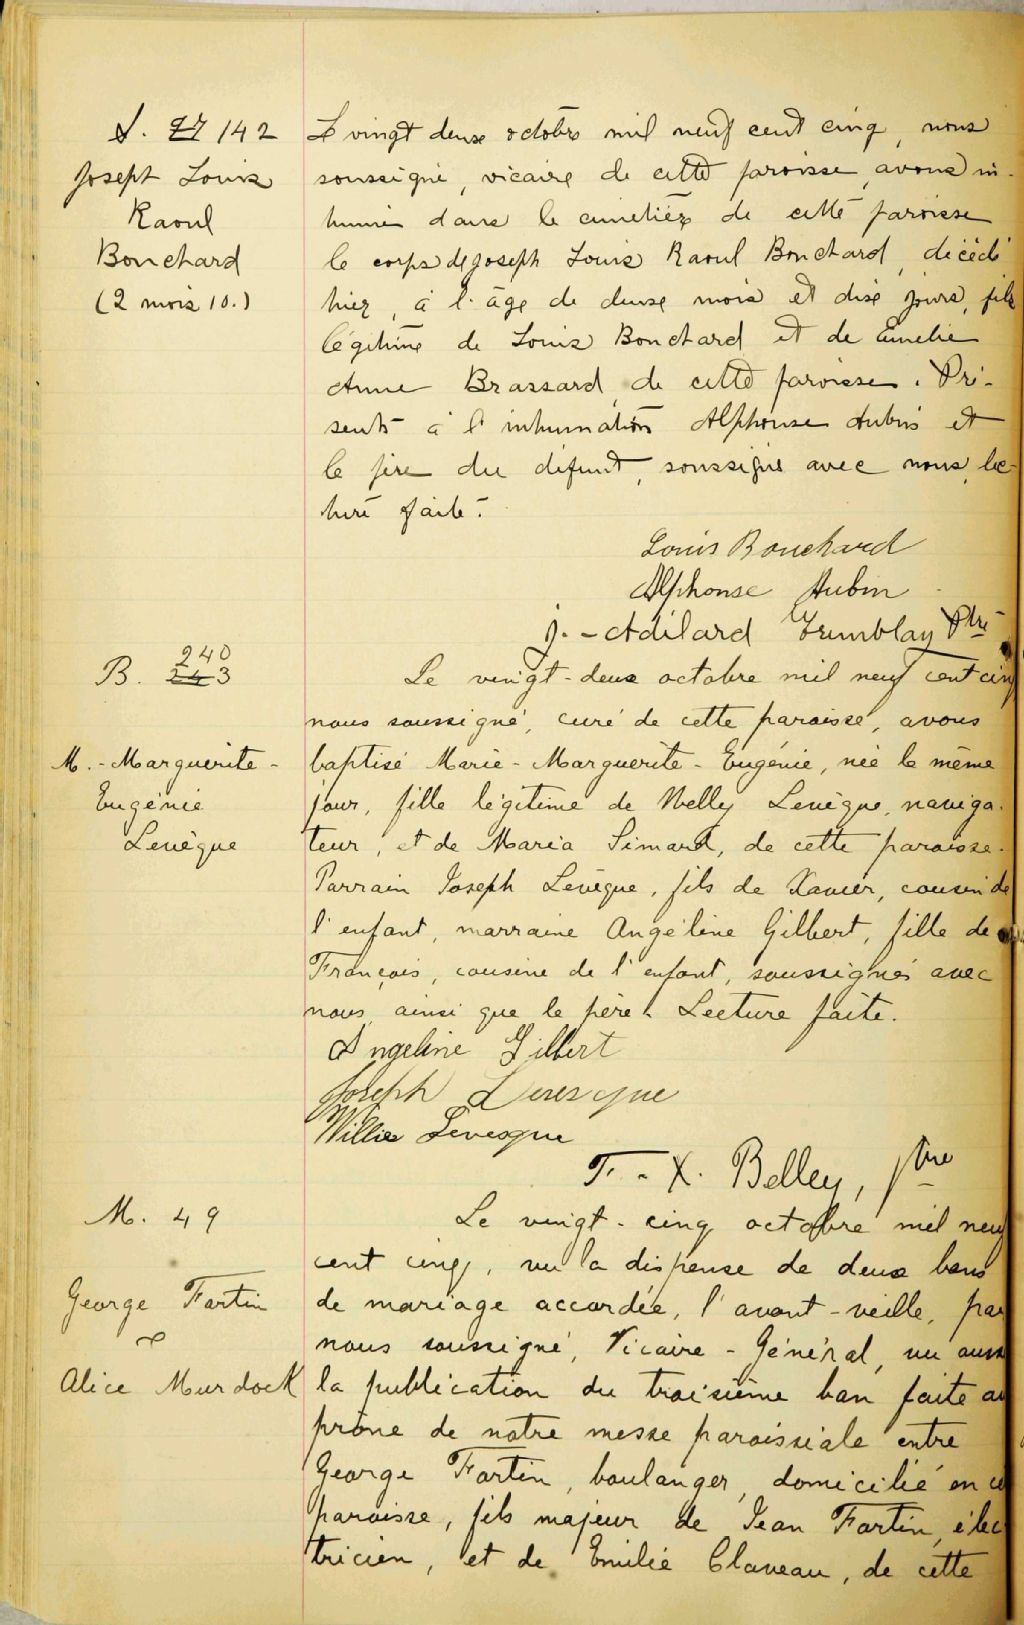 S. 27 142
Joseph Louis
Raoul
Bouchard
(2 mois 10.)
Le vingt deux octobre mil neuf cent cinq, nous
soussigné, vicaire de cette paroisse, avons in-
humé dans le cimetière de cette paroisse
le corps de Joseph Louis Raoul Bouchard, décédé
hier, à l'âge de deux mois et dix jours, fils
légitime de Louis Bouchard et de Emelie
Anne Brassard, de cette paroisse. Pré-
sents à l'inhumation Alphonse Aubin et
le père du défunt, soussignés avec nous, lec-
ture faite.
Louis Bouchard
Alphonse Aubin
J.-Adélard Tremblay Ptre
B. 243 240
M.-Marguerite-
Eugénie
Levèque
Le vingt-deux octobre mil neuf cent cinq
nous soussigné, curé de cette paroisse, avons
baptisé Marie-Marguerite-Eugénie, née le même
jour, fille légitime de Welly Levèque, naviga-
teur, et de Maria Simard, de cette paroisse.
Parrain Joseph Levèque, fils de Xavier, cousin de
l'enfant, marraine Angéline Gilbert, fille de
François, cousine de l'enfant, soussignés avec
nous, ainsi que le père. Lecture faite.
Angeline Gilbert
Joseph Levesque
Willie Levesque
F.-X. Belley, ptre
M. 49
George Fortin
&
Alice Murdock
Le vingt-cinq octobre mil neuf
cent cinq, vu la dispense de deux bans
de mariage accordée, l'avant-veille, par
nous soussigné, Vicaire-Général, vu aussi
la publication du troisième ban faite au
prône de notre messe paroissiale entre
George Fortin, boulanger, domicilié en ce
paroisse, fils majeur de Jean Fortin, élec-
tricien, et de Emilie Claveau, de cette